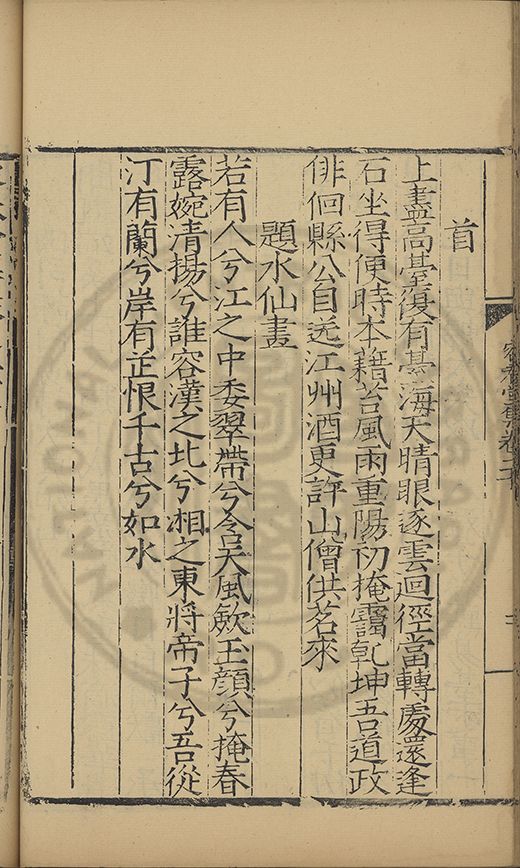 首
上盡高臺復有臺海天晴眼逐雲迴徑當轉處還逢
石坐得便時本藉苔風雨重陽初掩靄乾坤吾道政
俳徊縣公自送江州酒更許山僧供茗來
題水仙畫
若有人兮江之中委翠帶兮含天風歛玉顏兮掩春
露婉清揚兮誰容漢之北兮湘之東將帝子兮吾從
汀有蘭兮岸有芷恨千古兮如水